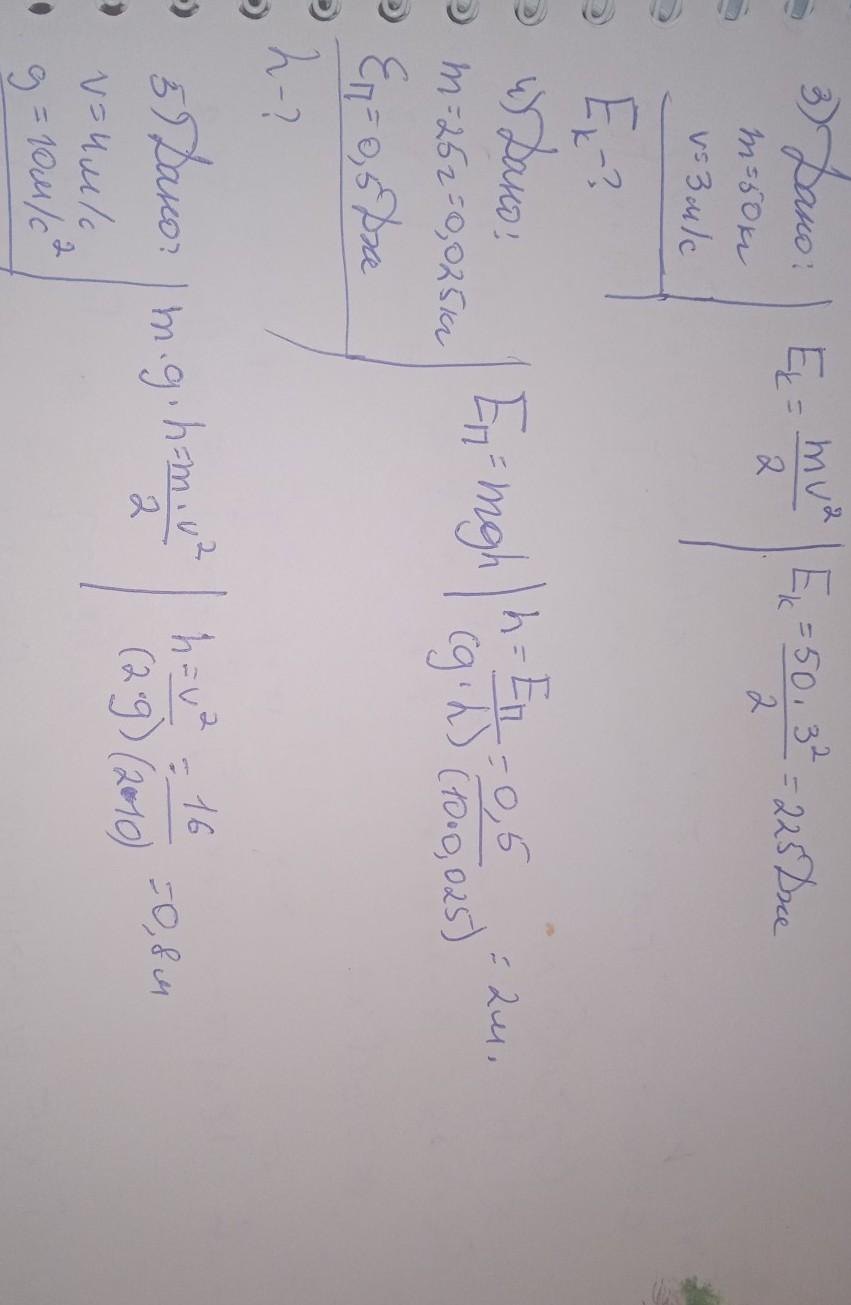 3) Дано:
m=50кг
v=3м/с
Eк-?
Eк = mv²/2
Eк = 50·3²/2 = 225Дже
4) Дано:
m=25г=0,025кг
Eп=0,5Дже
h-?
Eп=mgh
h=Eп/(g·h) = 0,5/(10·0,025) = 2м.
5) Дано:
v=4м/с
g=10м/с²
m·g·h=m·v²/2
h=v²/(2·g) = 16/(2·10) =0,8м